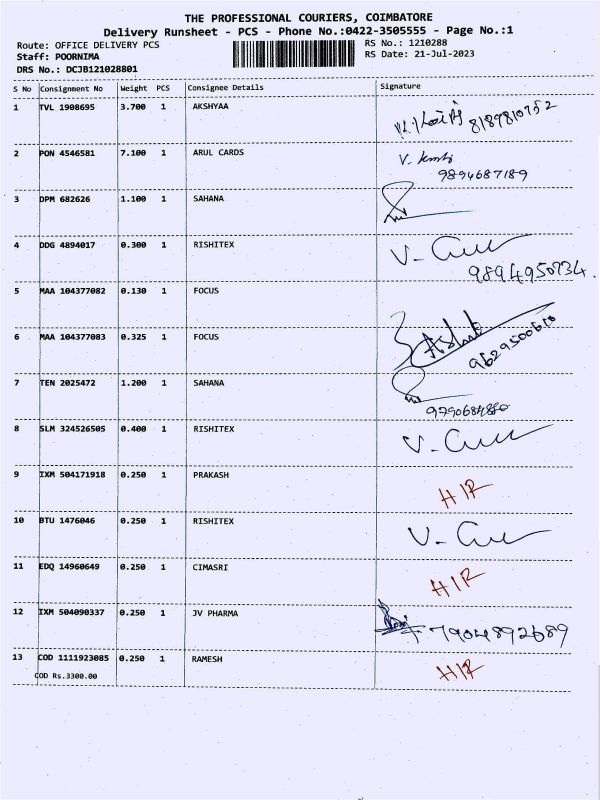 THE PROFESSIONAL COURIERS, COIMBATORE
Delivery Runsheet - PCS - Phone No.:0422-3505555 - Page No.:1
Route: OFFICE DELIVERY PCS
Staff: POORNIMA
DRS No.: DCJB121028801
RS No.: 1210288
RS Date: 21-Jul-2023
S No Consignment No Weight PCS Consignee Details Signature
1 TVL 1908695 3.700 1 AKSHYAA 8189810752
2 PON 4546581 7.100 1 ARUL CARDS V.
9894687189
3 DPM 682626 1.100 1 SAHANA
4 DDG 4894017 0.300 1 RISHITEX V-
9894950734
5 MAA 104377082 0.130 1 FOCUS
6 MAA 104377083 0.325 1 FOCUS
7 TEN 2025472 1.200 1 SAHANA
8 SLM 324526505 0.400 1 RISHITEX V-
9 IXM 504171918 0.250 1 PRAKASH HIR
10 BTU 1476046 0.250 1 RISHITEX V-
11 EDQ 14960649 0.250 1 CIMASRI HIR
12 IXM 504090337 0.250 1 JV PHARMA 7904892689
13 COD 1111923085 0.250 1 RAMESH HIR
COD Rs.3300.00